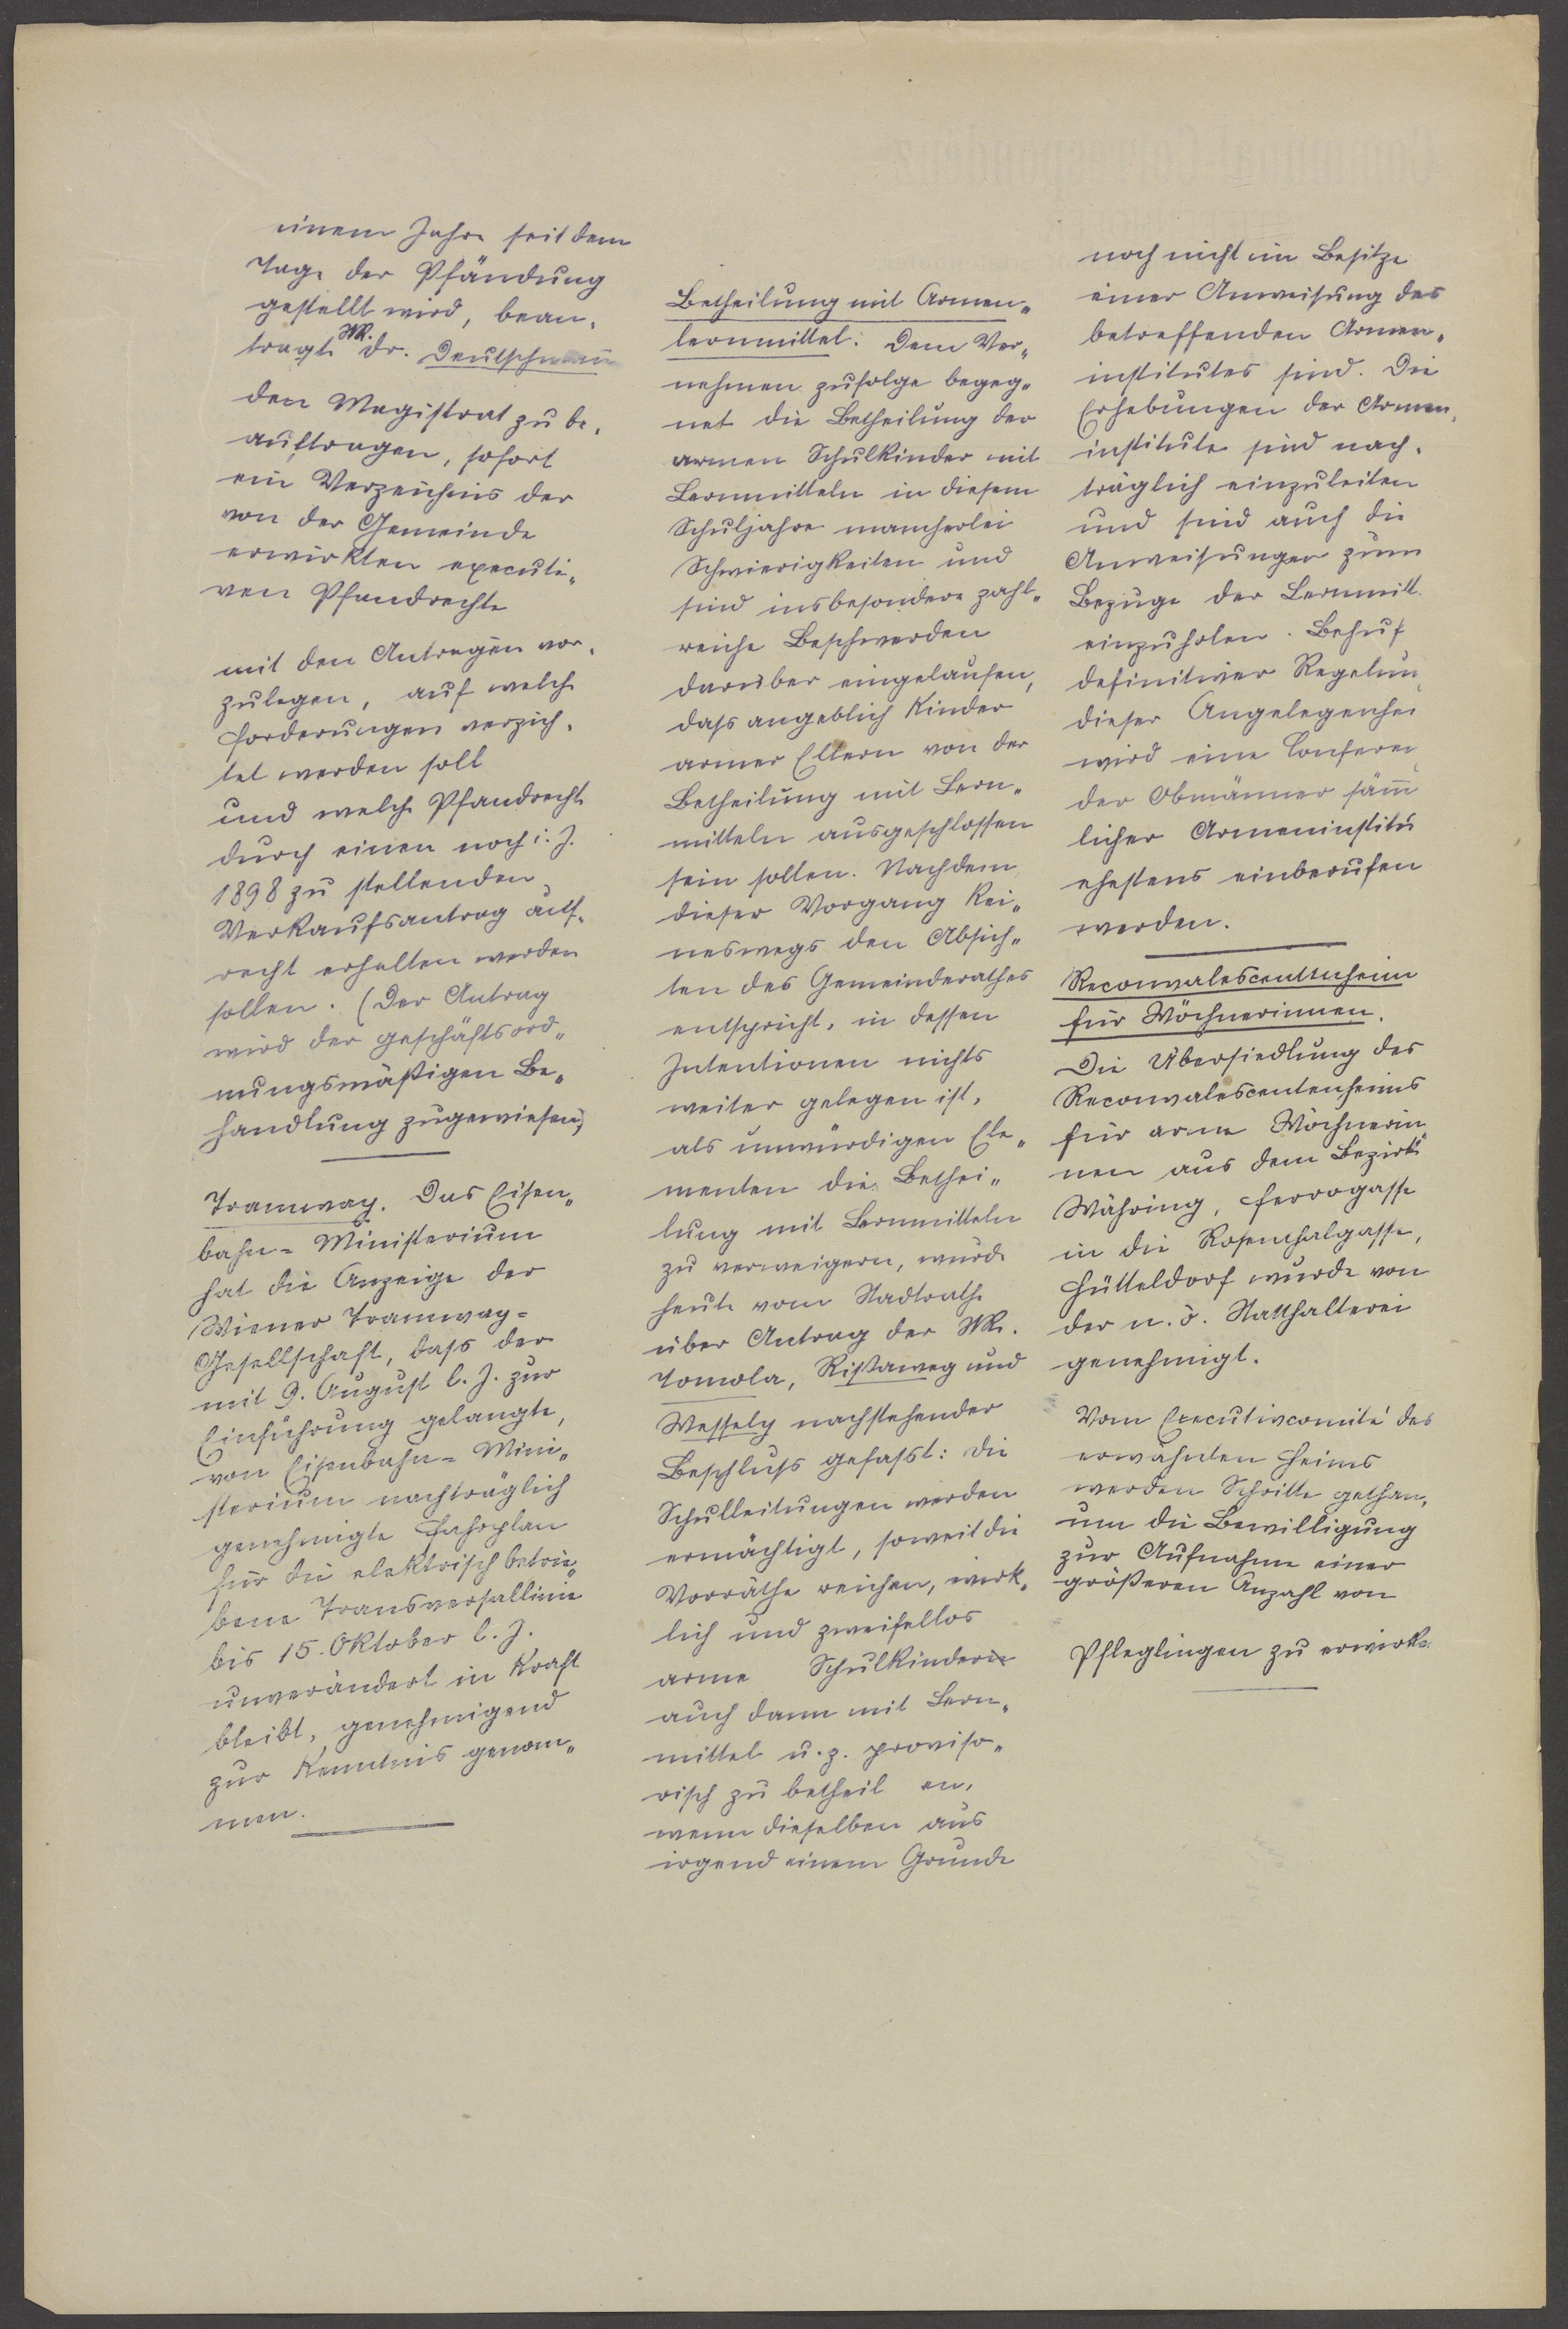 einem Jahre seit dem
Tage der Pfändung
gestellt wird, bean-
tragt StR. Dr. Deutschmann
den Magistrat zu be-
auftragen, sofort
ein Verzeichnis der
von der Gemeinde
erwirkten executi-
ven Pfandrechte
mit den Anträgen vor-
zulegen, auf welche
Forderungen verzich-
tet werden soll
und welche Pfandrechte
durch einen noch i. J.
1898 zu stellenden
Verkaufsantrag auf-
recht erhalten werden
sollen. (Der Antrag
wird der geschäftsord-
nungsmäßigen Be-
handlung zugewiesen)
Tramway. Das Eisen-
bahn-Ministerium
hat die Anzeige der
Wiener Tramway-
Gesellschaft, dass der
mit 9. August l. J. zur
Einführung gelangte,
von Eisenbahn-Mini-
sterium nachträglich
genehmigte Fahrplan
für die elektrisch betrie-
bene Transversallinie
bis 15. Oktober l. J.
unverändert in Kraft
bleibt, genehmigend
zur Kenntnis genom-
men.
Betheilung mit Armen-
lernmittel. Dem Ver-
nehmen zufolge begeg-
net die Betheilung der
armen Schulkinder mit
Lernmitteln in diesem
Schuljahre mancherlei
Schwierigkeiten und
sind insbesondere zahl-
reiche Beschwerden
darüber eingelaufen,
dass angeblich Kinder
armer Eltern von der
Betheilung mit Lern-
mitteln ausgeschlossen
sein sollen. Nachdem
dieser Vorgang kei-
neswegs den Absich-
ten des Gemeinderathes
entspricht, in dessen
Intentionen nichts
weiter gelegen ist,
als unwürdigen Ele-
menten die Bethei-
lung mit Lernmitteln
zu verweigern, wurde
heute vom Stadtrathe
über Antrag der StR.
Tomola, Rissaweg und
Wessely nachstehender
Beschluss gefasst: Die
Schulleitungen werden
ermächtigt, soweit die
Vorräthe reichen, wirk-
lich und zweifellos
arme Schulkinder
auch dann mit Lern-
mittel u. z. proviso-
risch zu betheil en,
wenn dieselben aus
irgend einem Grunde
noch nicht im Besitze
einer Anweisung des
betreffenden Armen-
institutes sind. Die
Erhebungen der Armen-
institute sind nach-
träglich einzuleiten
und sind auch die
Anweisungen zum
Bezuge der Lernmitt.
einzuholen. Behufs
definitiver Regelun
dieser Angelegenhei
wird eine Conferen
der Obmänner säm̄
licher Armeninstitu
ehestens einberufen
werden.
Reconvalescentenheim
für Wöchnerinnen.
Die Übersiedlung des
Reconvalescentenheims
für arme Wöchnerin
nen aus dem Bezirke
Währing, Ferrogasse
in die Rosenthalgasse,
Hütteldorf wurde von
der n. ö. Statthalterei
genehmigt.
Vom Executivcomité des
erwähnten Heims
werden Schritte gethan,
um die Bewilligung
zur Aufnahme einer
größeren Anzahl von
Pfleglingen zu erwirk.